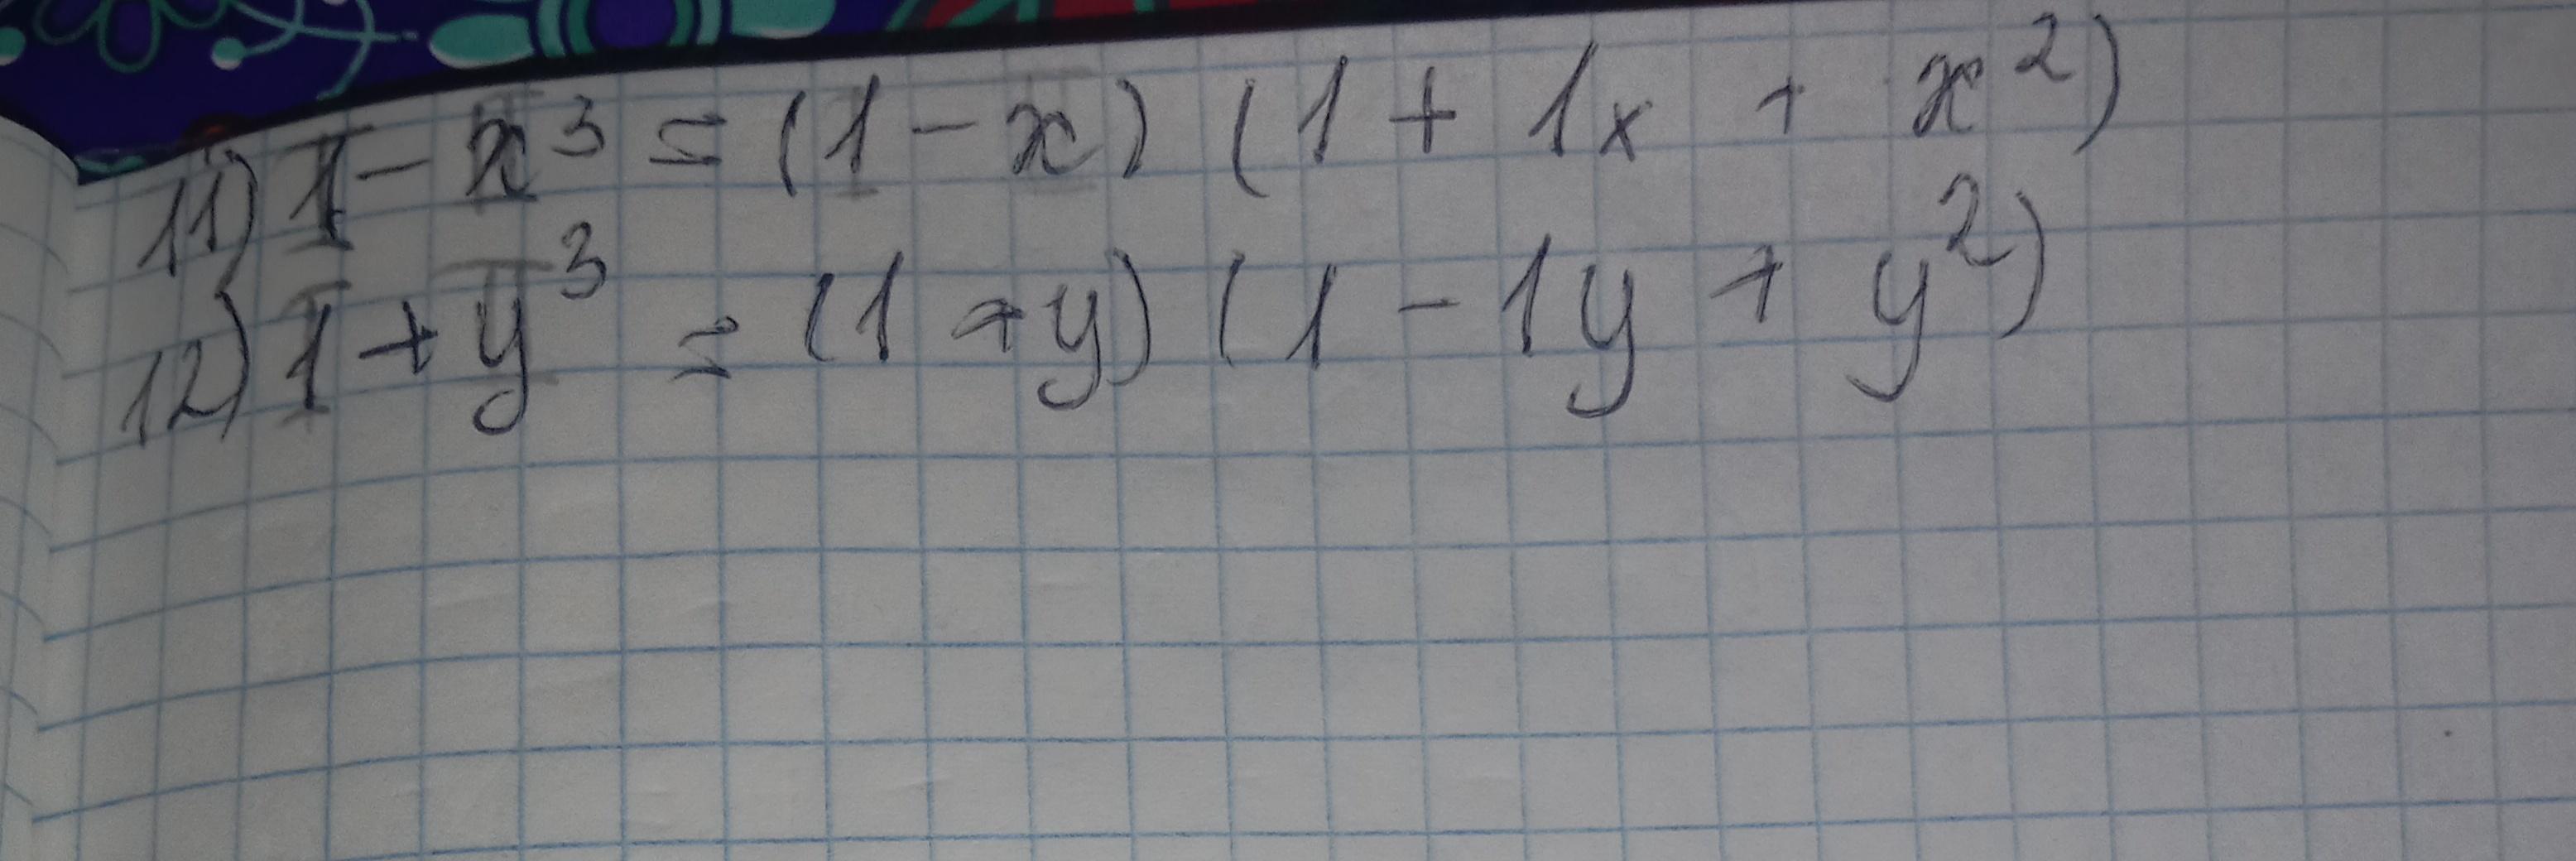 11) 1 - x³ = (1 - x) (1 + 1x + x²)
12) 1 + y³ = (1 + y) (1 - 1y + y²)